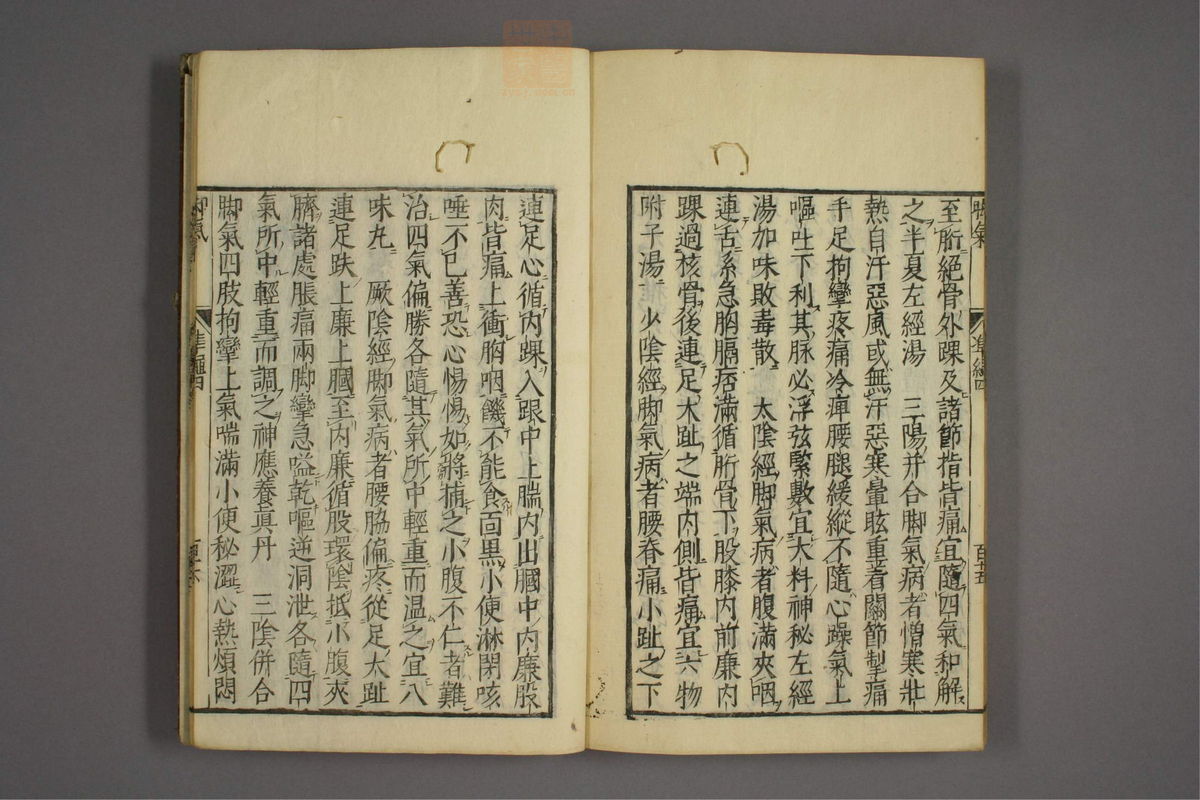 至胻絕骨外踝及諸節指皆痛宜隨四氣和解
之半夏左經湯　三陽并合脚氣病者憎寒壯
熱自汗惡風或無汗惡寒暈眩重着關節掣痛
手足拘攣疼痛冷痺腰腿緩縱不隨心躁氣上
嘔吐下利其脉必浮弦緊數宜大料神秘左經
湯加味敗毒散　太陰經脚氣病者腹滿夾咽
連舌系急胸膈痞滿循胻骨下股膝内前廉内
踝過核骨後連足大趾之端内側皆痛宜六物
附子湯　少陰經脚氣病者腰脊痛小趾之下
連足心循内踝入跟中上腨内出膕中内廉股
肉皆痛上衝胸咽饑不能食面黑小便淋閉咳
唾不已善恐心惕惕如將捕之小腹不仁者難
治四氣偏勝各隨其氣所中輕重而温之宜八
味丸　厥陰經脚氣病者腰脇偏疼從足大趾
連足趺上廉上膕至内廉循股環陰抵小腹夾
臍諸處脹痛兩脚攣急嗌乾嘔逆洞泄各隨四
氣所中輕重而調之神應養真丹　三陰併合
脚氣四肢拘攣上氣喘滿小便秘澀心熱煩悶
脚氣
準繩四